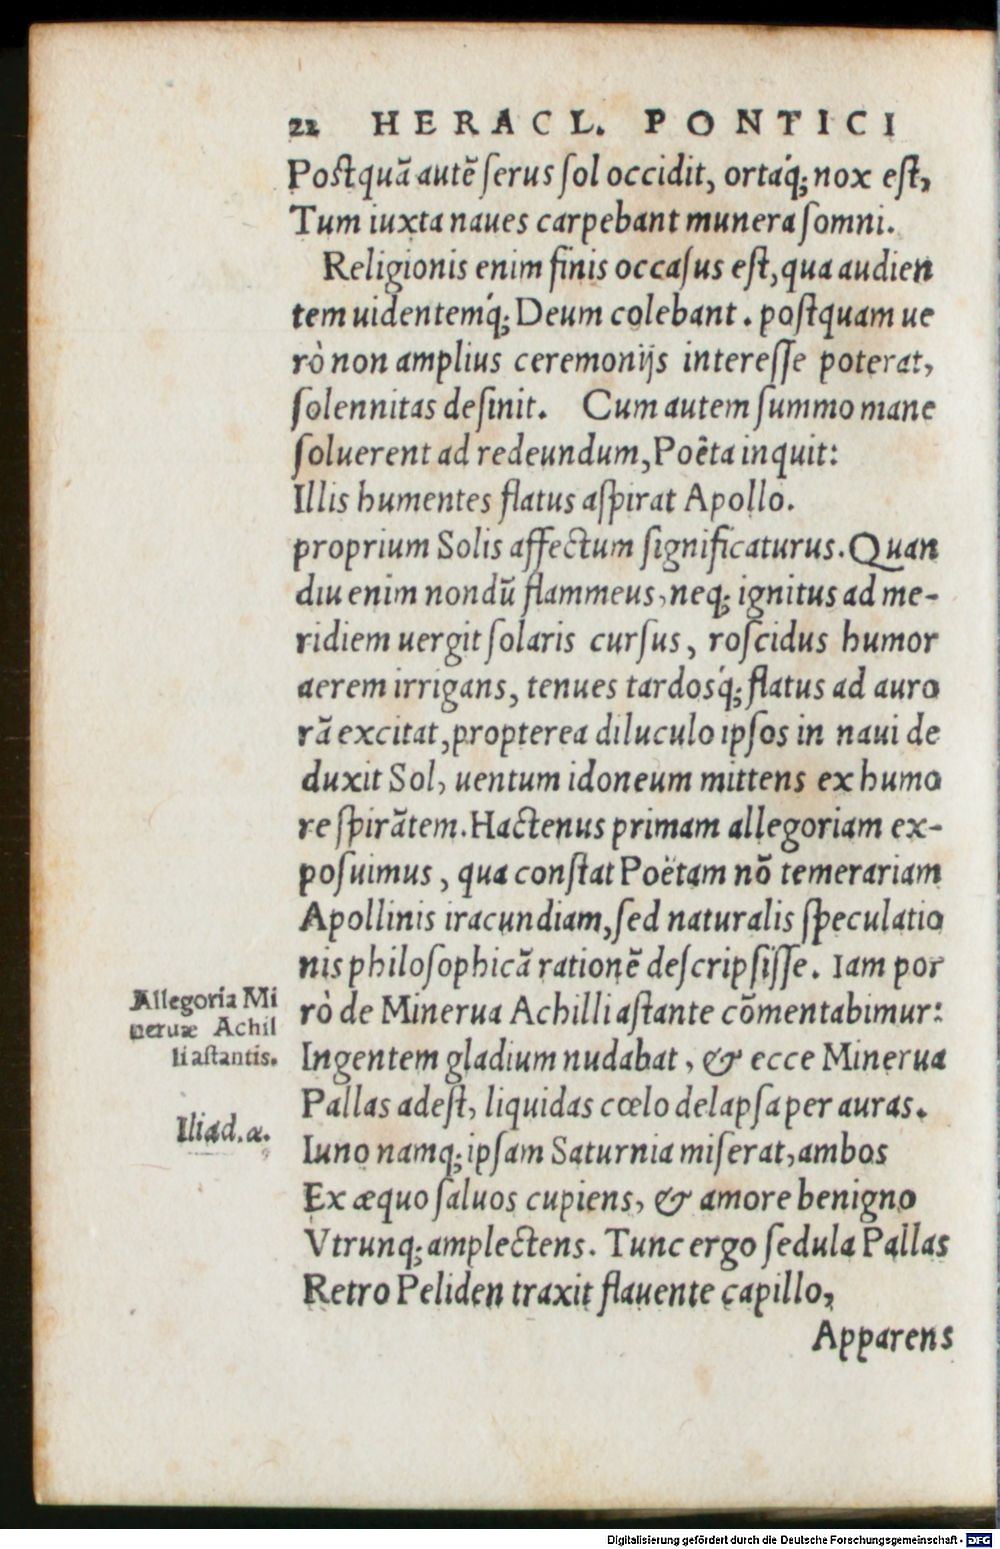 22 HERACL. PONTICI
Postquā autē ſerus ſol occidit, ortáq; nox eſt,
Tum iuxta naues carpebant munera ſomni.
Religionis enim finis occaſus eſt, qua audien
tem uidentemq́; Deum colebant. poſtquam ue
rò non amplius ceremonijs intereſſe poterat,
ſolennitas deſinit. Cum autem ſummo mane
ſoluerent ad redeundum, Poëta inquit:
Illis humentes flatus aſpirat Apollo.
proprium Solis affectum ſignificaturus. Quan
diu enim nondū flammeus, neq; ignitus ad me-
ridiem uergit ſolaris curſus, roſcidus humor
aerem irrigans, tenues tardosq́; flatus ad auro
rā excitat, propterea diluculo ipſos in naui de
duxit Sol, uentum idoneum mittens ex humo
re ſpirātem. Hactenus primam allegoriam ex-
poſuimus, qua conſtat Poëtam nō temerariam
Apollinis iracundiam, ſed naturalis ſpeculatio
nis philoſophicā rationē deſcripſiſſe. Iam por
rò de Minerua Achilli aſtante cōmentabimur:
Ingentem gladium nudabat, & ecce Minerua
Pallas adeſt, liquidas cœlo delapſa per auras.
Iuno namq; ipſam Saturnia miſerat, ambos
Ex æquo ſaluos cupiens, & amore benigno
Vtrunq; amplectens. Tunc ergo ſedula Pallas
Retro Peliden traxit flauente capillo,
Apparens
Allegoria Mi
neruæ Achil
li aſtantis.
Iliad. α.
Digitalisierung gefördert durch die Deutsche Forschungsgemeinschaft - DFG